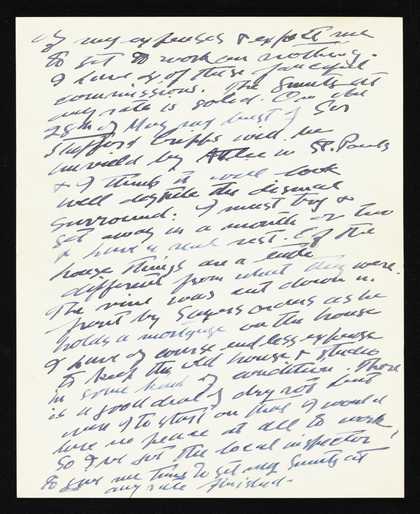 of my expenses & expect me
to get to work on nothing.
I have of these fanciful
commissions. The Smuts at
any rate is solid. On the
28th of May my bust of Sir
Stafford Cripps will be
unveiled by Attlee in St. Pauls
& I think it will look
well despite the dismal
surround. I must try &
get away in a month or two
& have a real rest. Of the
house things are a little
different from what they were.
The vine was cut down in
front by orders as he
holds a mortgage on the house
I have of course endless expense
to keep the old house & studio
in some kind of condition. There
is a good deal of dry rot but
were I to start on that I would
have no peace at all to work,
So I've got the local inspector
to give me time to get my Smuts at
any rate finished.